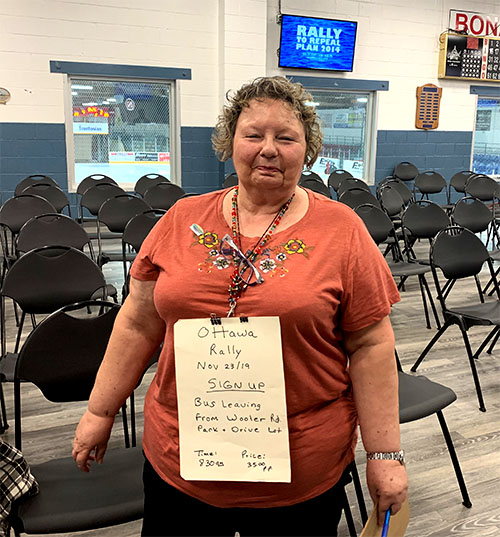 RALLY
TO REPEAL
PLAN 2014
BONA
OttaWA
Rally
Nov 23/19
SIGN UP
Bus Leaving
From Wooler Rd.
Park + Drive Lot
Time: Price:
8:30 35.00
P.P